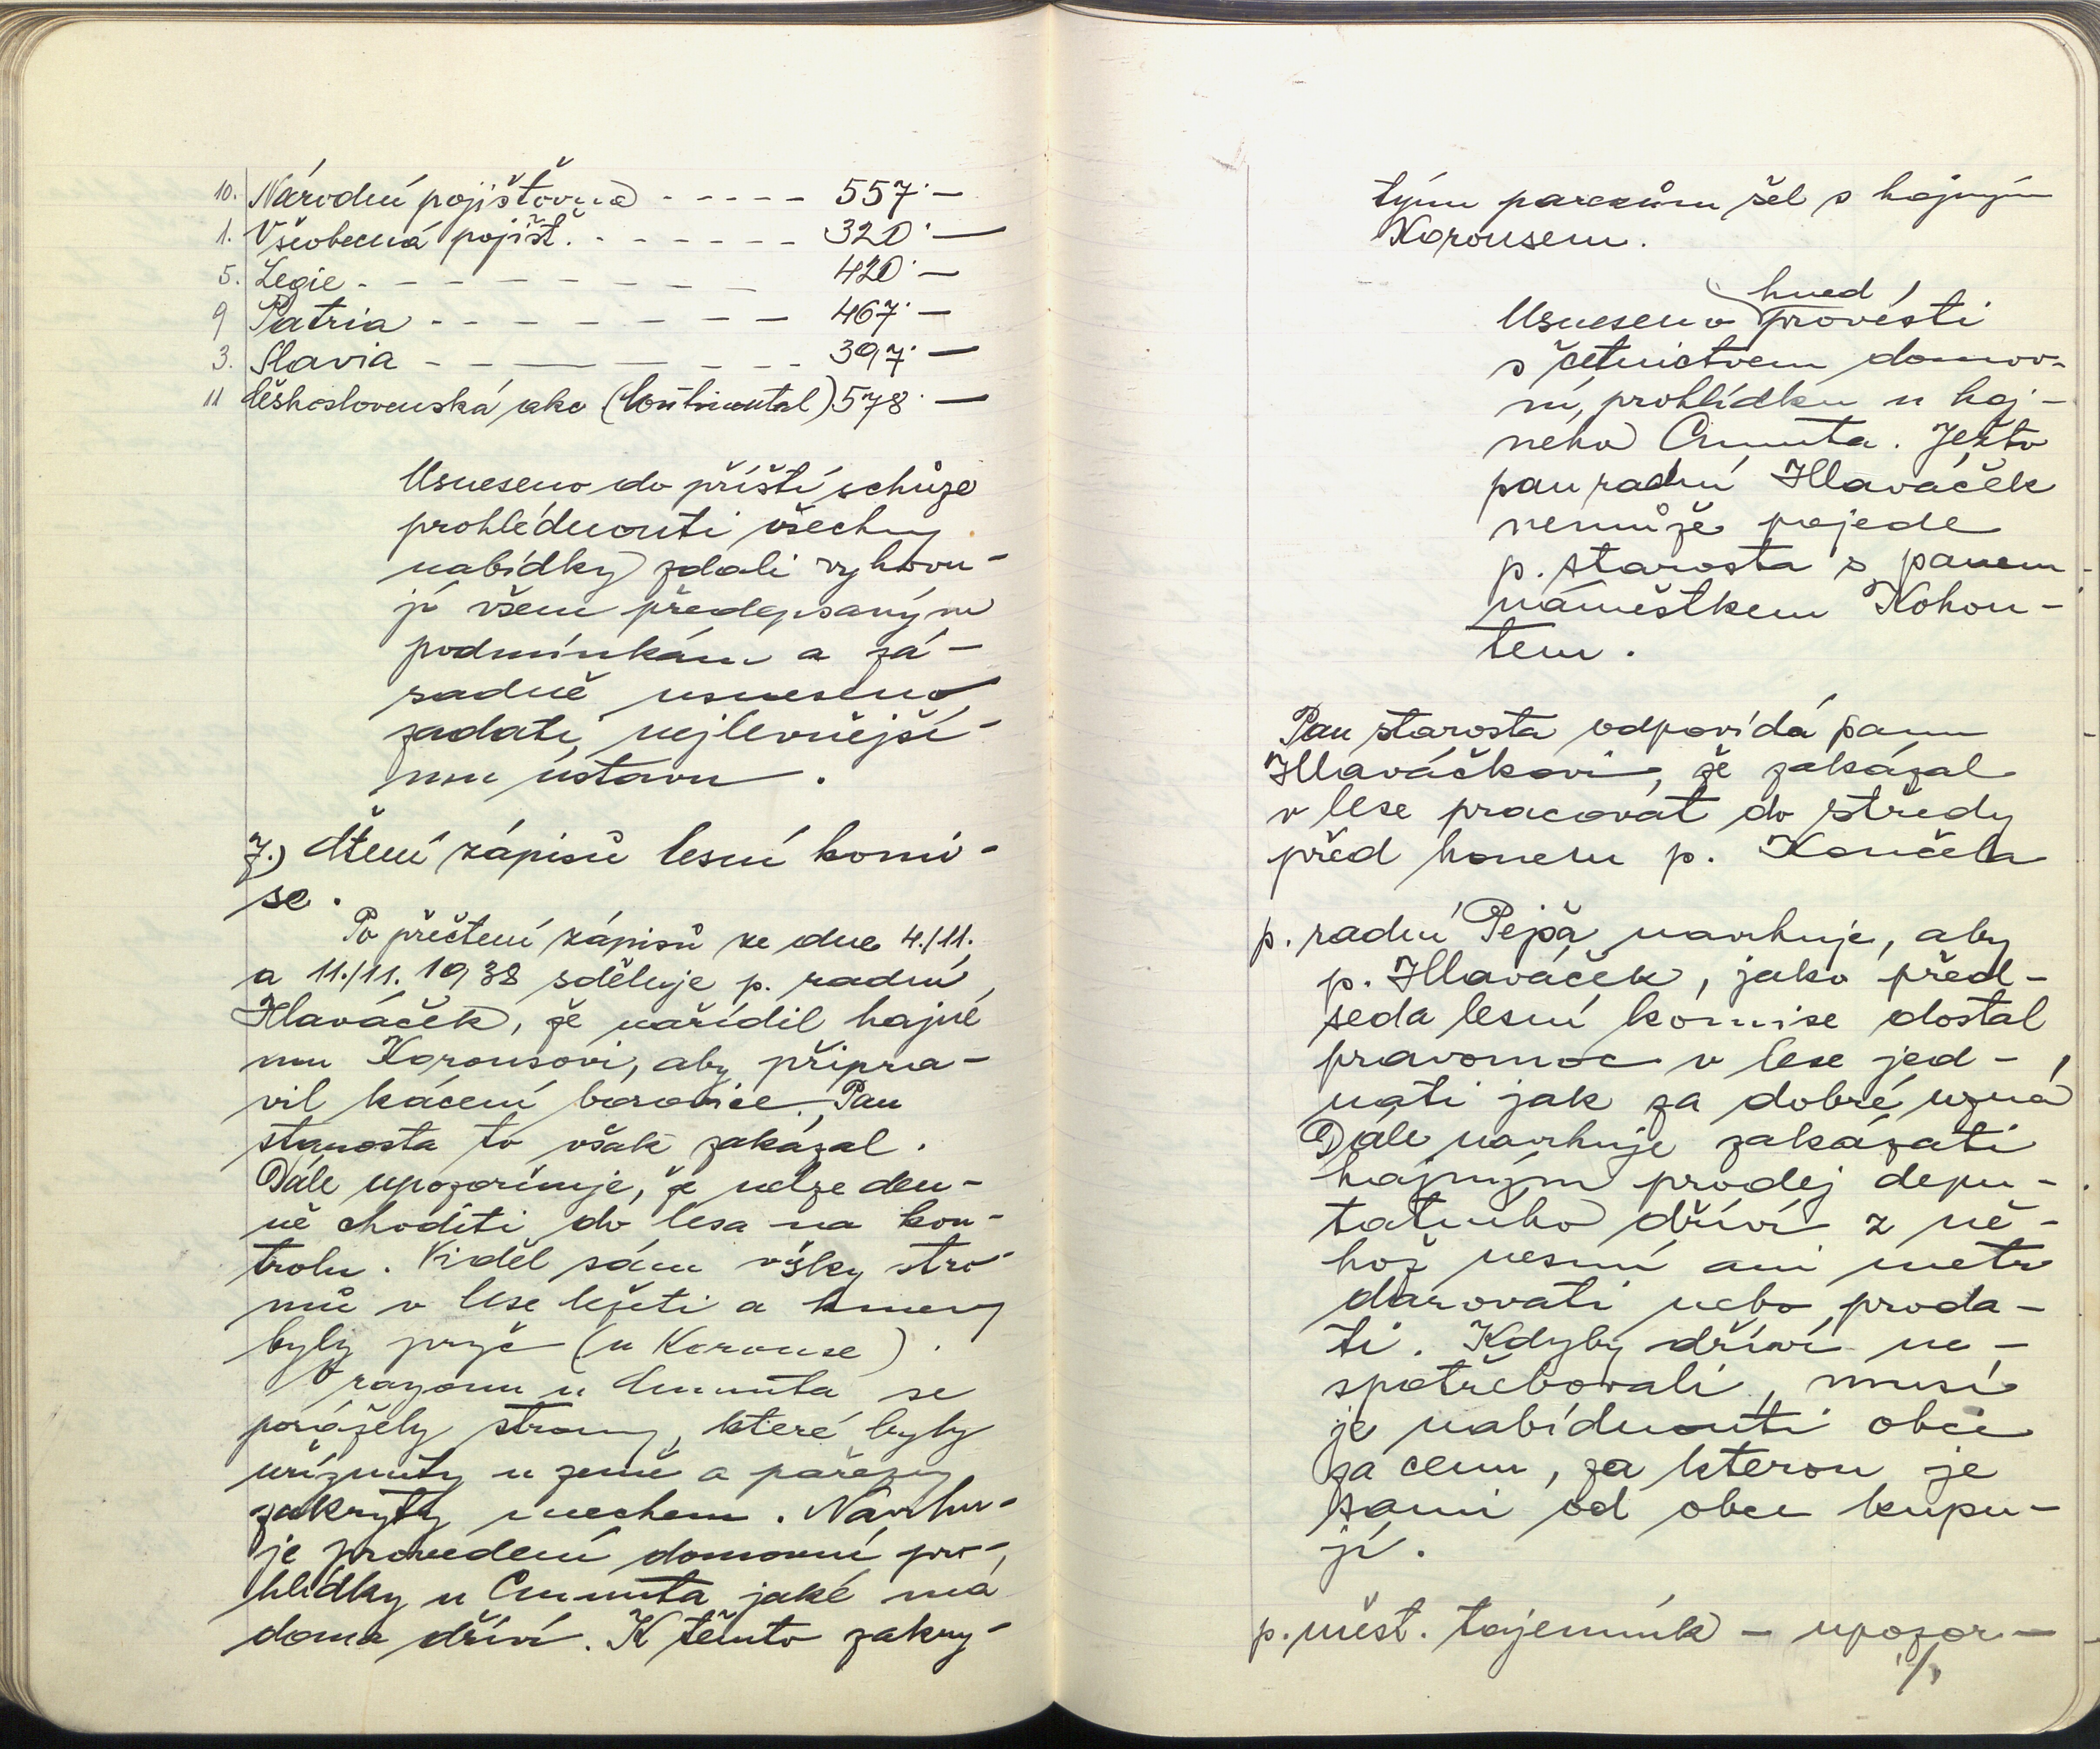 10. Národní pojišťovna - - - - - 557·—
1. Všeobecná pojišť. - - - - - - - 320·—
5. Legie - - - - - - - - - 420·—
9 Patria - - - - - - - - 467·—
3. Slavia - - — — - - - 397·—
11 Československá akc (Continental) 578·—
Usneseno do příští schůze
prohlédnouti všechny
nabídky zdali vyhovu-
jí všem předepsaným
podmínkám a zá-
sadně usneseno
zadati nejlevnější-
mu ústavu.
7.) Čtení zápisů lesní komi-
se.
Po přečtení zápisů ze dne 4./11.
a 11./11. 1938 sděluje p. radní
Hlaváček, že nařídil hajné
mu Korousovi, aby připra-
vil kácení borovice. Pan
starosta to však zakázal.
Dále upozorňuje, že nelze den-
ně choditi do lesa na kon-
trolu. Viděl sám vršky stro-
mů v lese ležeti a kmeny
byly pryč (u Korouse).
V rayonu u Cmunta se
porážely stromy, které byly
uříznuty u země a pařezy
zakryty mechem. Navrhu-
je provedení domovní pro-
hlídky u Cmunta jaké má
doma dříví. K těmto zakry-
tým parezům šel s hajným
Korousem.
hned
Usneseno provésti
s četnictvem domov-
ní prohlídku u haj-
neho Cmunta. Ježto
pan radní Hlaváček
nemůže pojede
p. starosta s panem
náměstkem Kohou-
tem.
Pan starosta odpovídá panu
Hlaváčkovi, že zakázal
v lese pracovat do středy
před honem p. Končela
p. radní Pejša navrhuje, aby
p. Hlaváček, jako před-
seda lesní komise dostal
pravomoc v lese jed-
nati jak za dobré uzná
Dále navrhuje zakázati
hajným prodej depu-
tatního dříví z ně-
hož nesmí ani metr
darovati nebo proda-
ti. Kdyby dříví ne-
spotřebovali, musí
je nabídnouti obci
za cenu, za kterou je
sami od obce kupu-
jí.
p. měst. tajemník - upozor-
./.